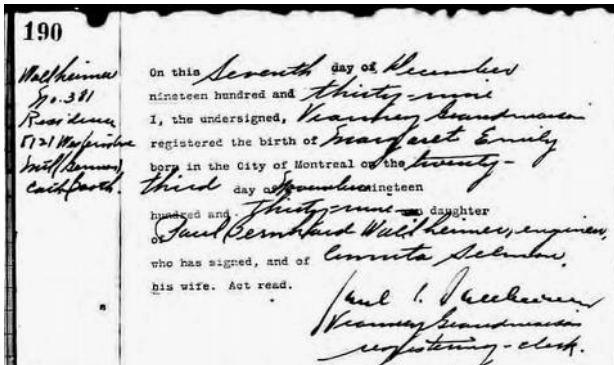 190
Wallheimer
No. 381
Residence
5121 Westminster
On this Seventh day of December
nineteen hundred and thirty-nine
I, the undersigned, Vianney Grandmaison
registered the birth of Margaret Emily
born in the City of Montreal on the twenty-
third day of November nineteen
hundred and thirty-nine daughter
of Paul Bernhard Wallheimer, engineer,
who has signed, and of Selmon,
his wife. Act read.
Paul Wallheimer
Vianney Grandmaison
registering-clerk.